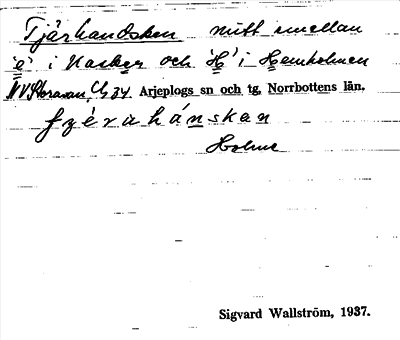 Tjärhandsken mitt emellan
'e' i Nacker och 'H' i Hemholmen
NV Storavan, Ug 34 Arjeplogs sn och tg, Norrbottens län.
Holme
Sigvard Wallström, 1937.